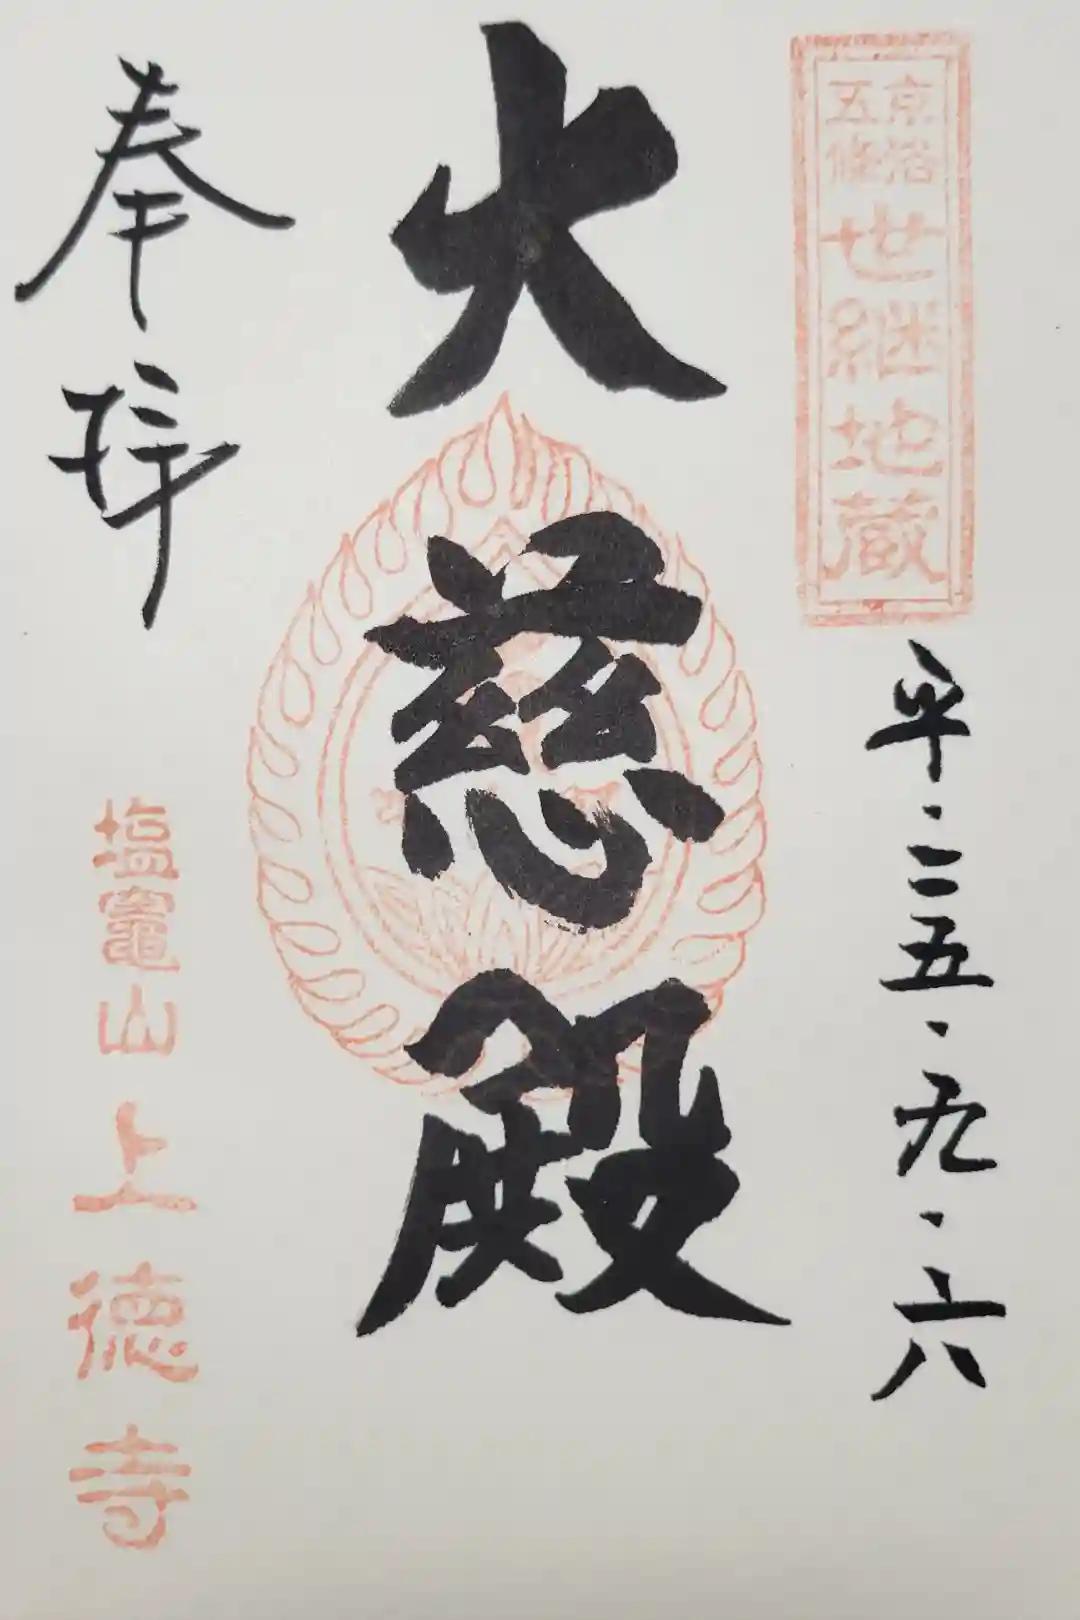 京洛
五條
世継地蔵
平・二五・九・六
大慈殿
奉拝
塩竈山上徳寺